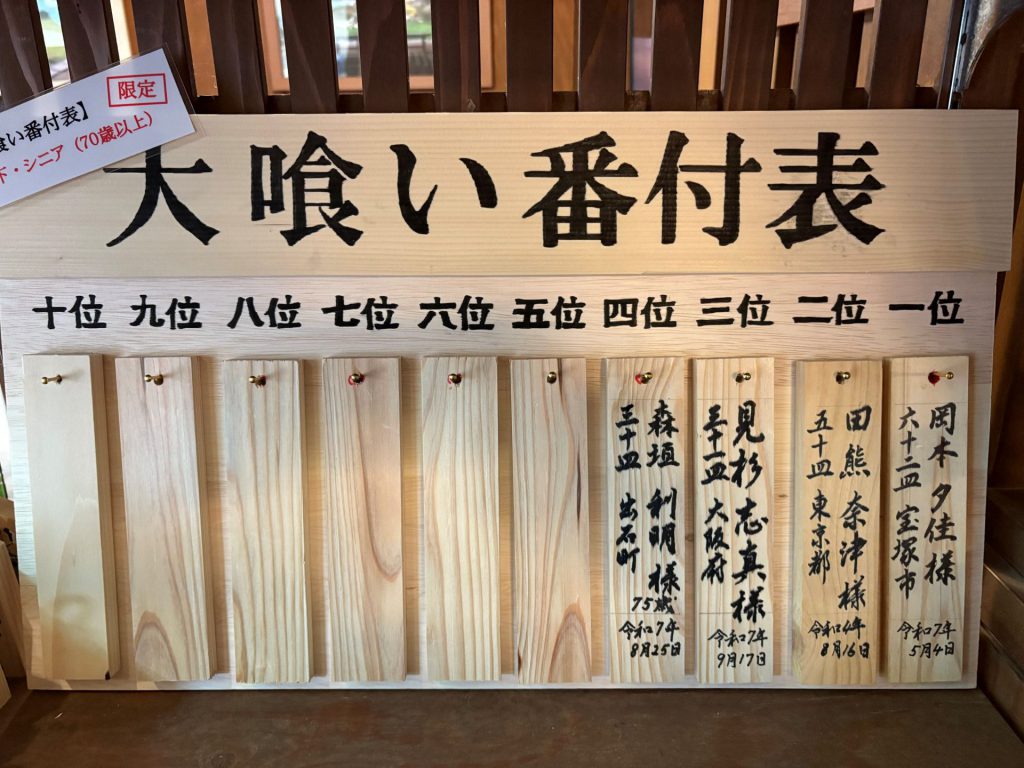 限定
喰い番付表】
下・シニア（70歳以上）
大喰い番付表
一位
二位
三位
四位
五位
六位
七位
八位
九位
十位
岡本 夕佳様
六十二皿 宝塚市
令和7年
5月4日
田熊 奈津様
五十四皿 東京都
令和4年
8月16日
見杉 志真様
三十二皿 大阪府
令和7年
9月17日
森垣 利明様
75歳
三十皿 出石町
令和7年
8月25日